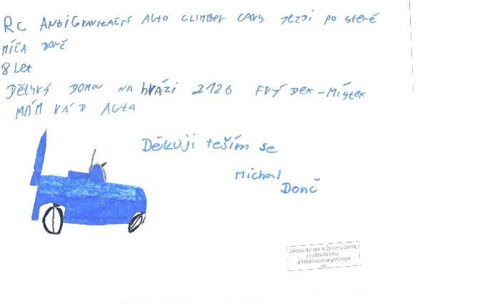 RC ANtiGravitačni AUto CLIMBER CARS JEZDí po STěNě
MíŠA DONč
8 Let
DětsKý DOMOV NA hRÁZi 2126 FRýDEK-MÍstEK
MÁM RÁD AUTA
Děkuji těším se
Michal
Donč